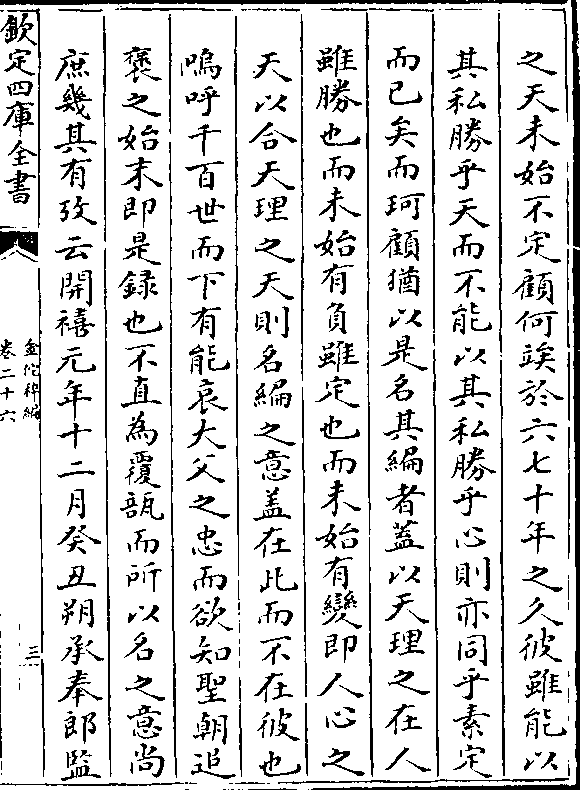 之天未始不定顧何竢於六七十年之久彼雖能以
其私勝乎天而不能以其私勝乎心則亦同乎素定
而已矣而珂顧猶以是名其編者蓋以天理之在人
雖勝也而未始有負雖定也而未始有變即人心之
天以合天理之天則名編之意蓋在此而不在彼也
嗚呼千百世而下有能哀大父之忠而欲知聖朝追
褒之始末即是録也不直為覆瓿而所以名之意尚
庶幾其有攷云開禧元年十二月癸丑朔承奉郎監
欽定四庫全書
金佗稡編
卷二十六
三